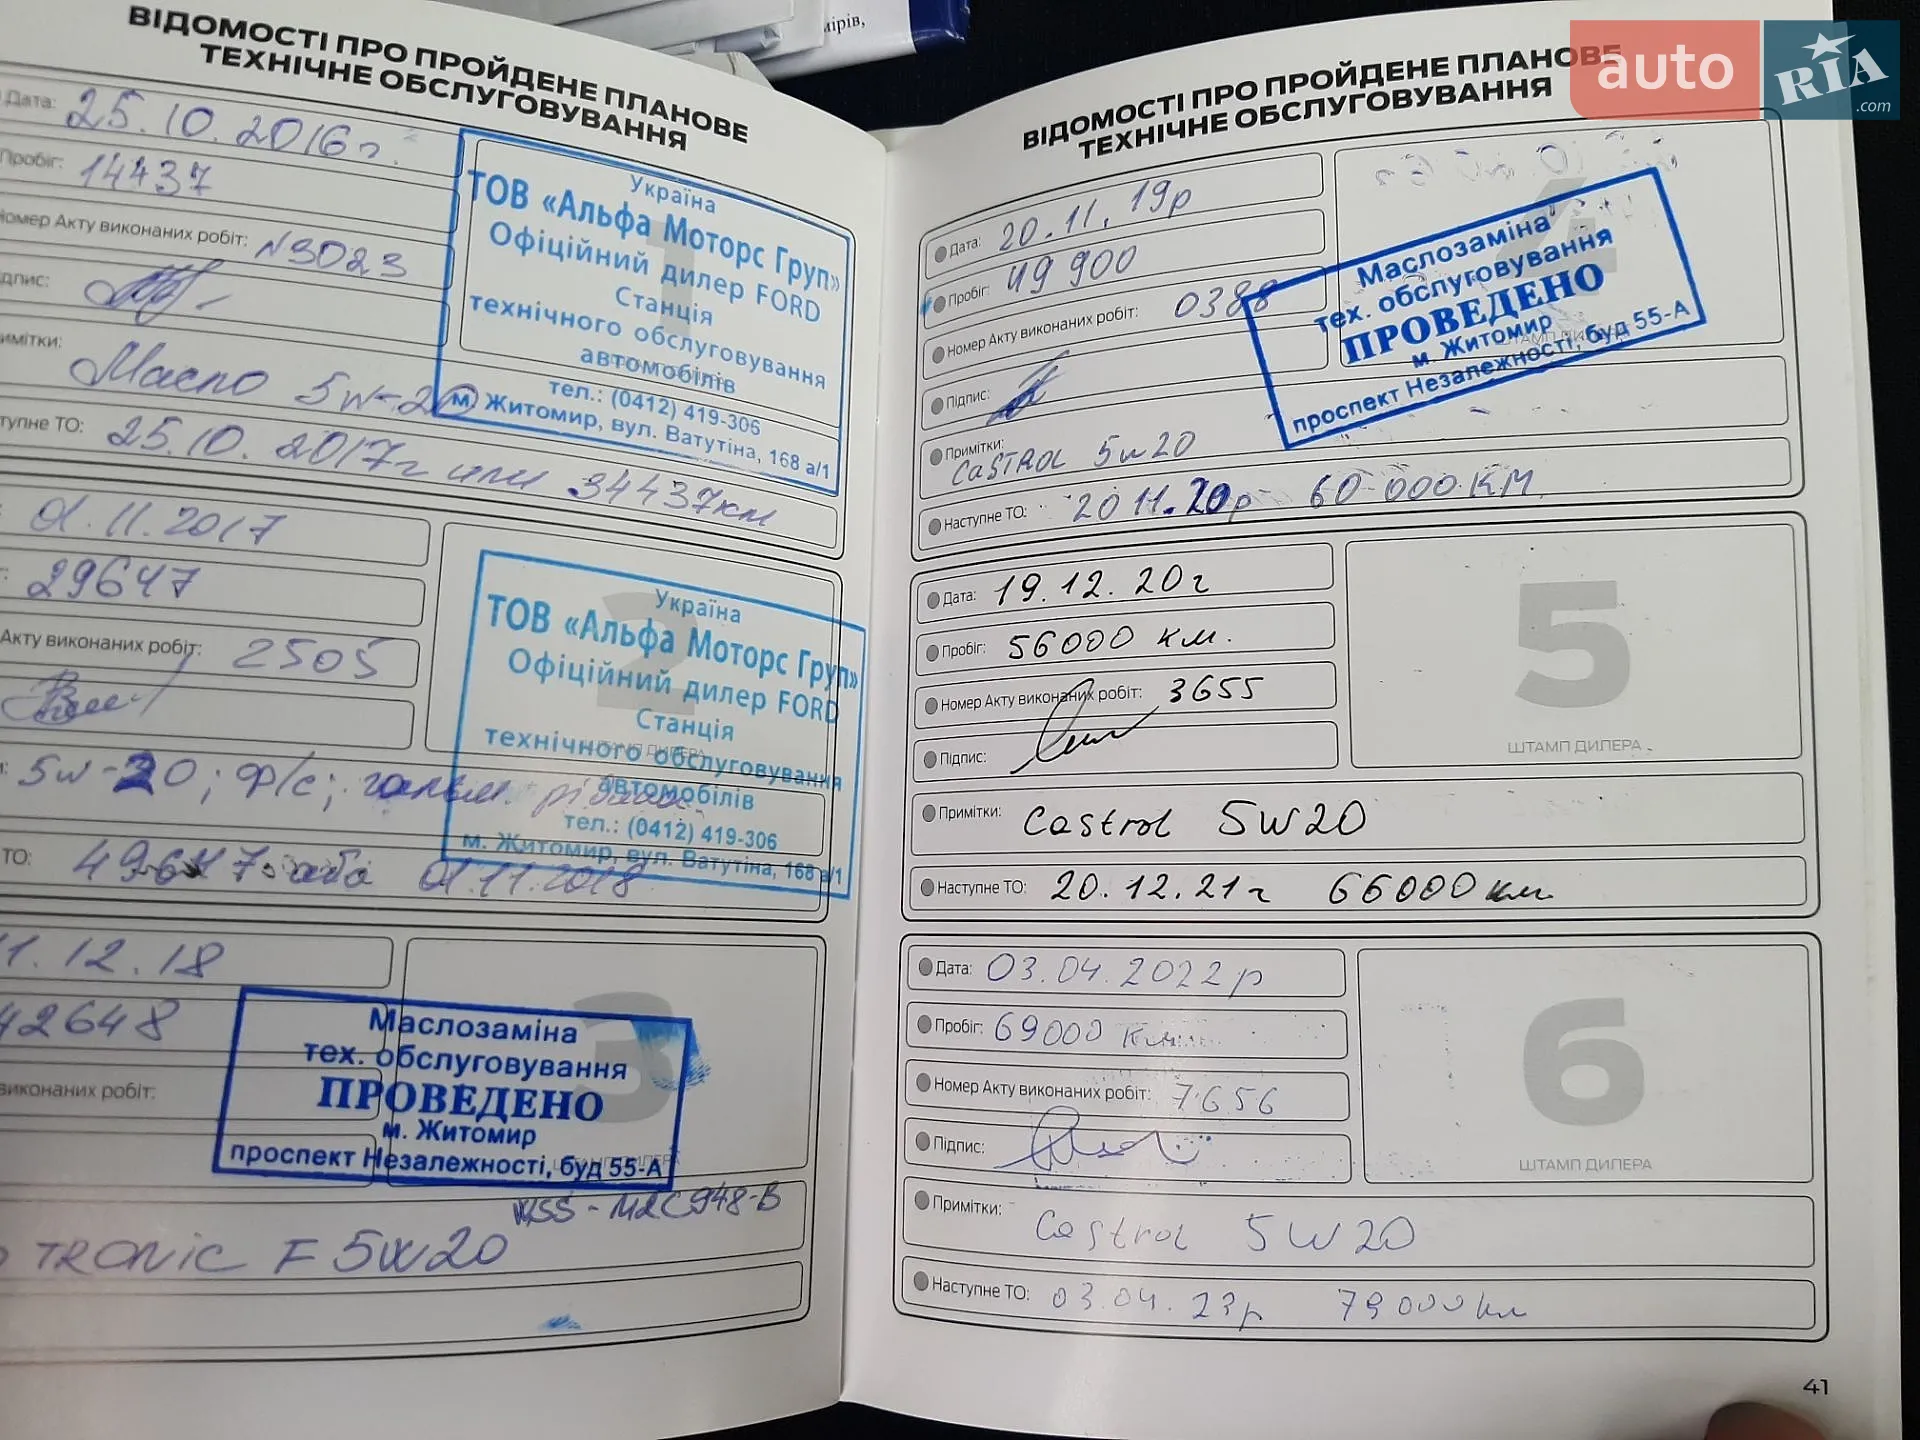 мірів,
auto RIA .com
ВІДОМОСТІ ПРО ПРОЙДЕНЕ ПЛАНОВЕ
ТЕХНІЧНЕ ОБСЛУГОВУВАННЯ
Дата: 25.10.2016г.
Пробіг: 14437
Номер Акту виконаних робіт: N3023
дпис:
имітки:
Масло 5w-20
тупне ТО: 25.10.2017г или 34437км
1
Україна
ТОВ «Альфа Моторс Груп»
Офіційний дилер FORD
Станція
технічного обслуговування
автомобілів
тел.: (0412) 419-306
м. Житомир, вул. Ватутіна, 168 а/1
01.11.2017
29647
Акту виконаних робіт: 2505
5w-20; ф/с; гальм. рідина
ТО: 49647 або 01.11.2018
2
ШТАМП ДИЛЕРА
Україна
ТОВ «Альфа Моторс Груп»
Офіційний дилер FORD
Станція
технічного обслуговування
автомобілів
тел.: (0412) 419-306
м. Житомир, вул. Ватутіна, 168 а/1
1.12.18
42648
виконаних робіт:
3
ШТАМП ДИЛЕРА
Маслозаміна
тех. обслуговування
ПРОВЕДЕНО
м. Житомир
проспект Незалежності, буд 55-А
WSS-M2C948-B
TRONIC F 5W20
ВІДОМОСТІ ПРО ПРОЙДЕНЕ ПЛАНОВЕ
ТЕХНІЧНЕ ОБСЛУГОВУВАННЯ
Дата: 20.11.19р
Пробіг: 49 900
Номер Акту виконаних робіт: 0388
Підпис:
Примітки:
CASTROL 5w20
Наступне ТО: 20 11.20р 60 000 КМ
4
ШТАМП ДИЛЕРА
Маслозаміна
тех. обслуговування
ПРОВЕДЕНО
м. Житомир
проспект Незалежності, буд 55-А
Дата: 19.12.20г
Пробіг: 56000 км.
Номер Акту виконаних робіт: 3655
Підпис:
Примітки: Castrol 5W20
Наступне ТО: 20.12.21г 66000км
5
ШТАМП ДИЛЕРА
Дата: 03.04.2022р
Пробіг: 69000 км
Номер Акту виконаних робіт: 7656
Підпис:
Примітки:
Castrol 5W20
Наступне ТО: 03.04.23р 79000км
6
ШТАМП ДИЛЕРА
41